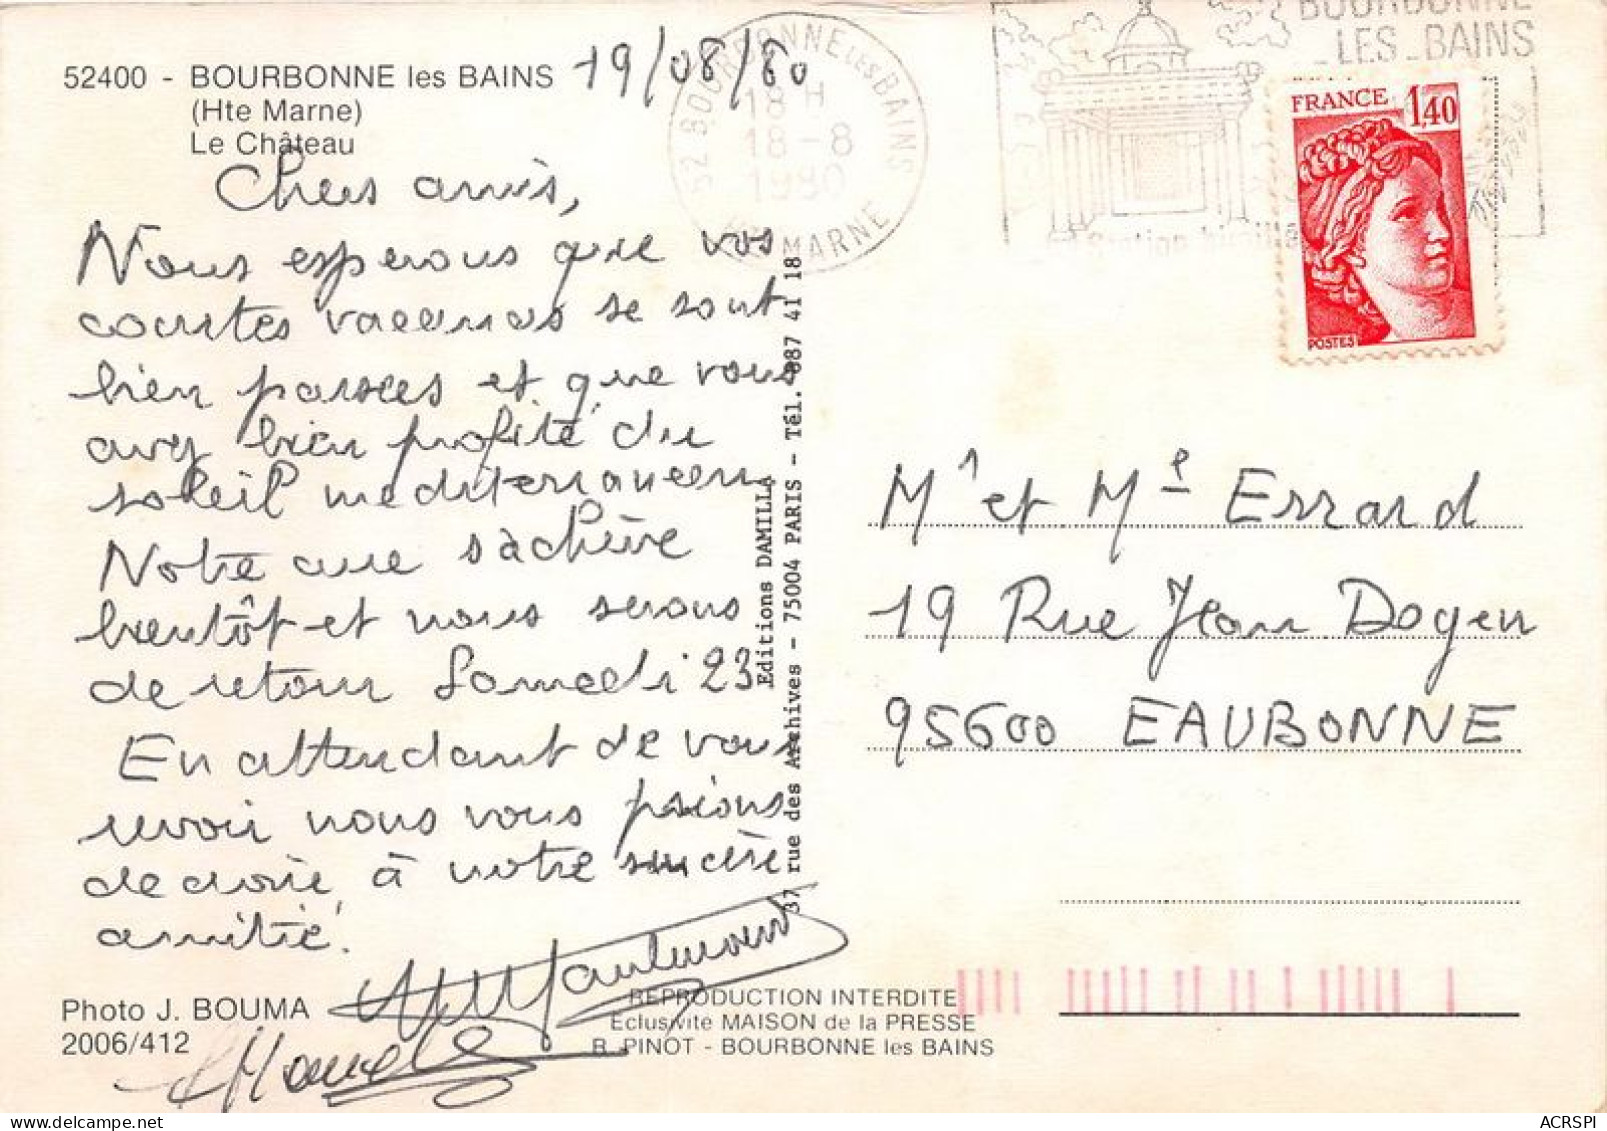 52400 - BOURBONNE les BAINS
(Hte Marne)
Le Château
19/08/80
52 BOURBONNE LES BAINS
18 H
18-8
1980
MARNE
BOURBONNE
LES BAINS
Station
FRANCE 1,40
POSTES
Chers amis,
Nous esperons que vos
courtes vacances se sont
bien passées et que vous
avez bien profité du
soleil mediterranéen
Notre cure s'achève
bientôt et nous serons
de retour Samedi 23
En attendant de vous
revoir nous vous prions
de croire à notre sincère
amitié.
Editions DAMILLA
37 rue des Archives - 75004 PARIS - Tél. 887 41 18
Mr et Me Errard
19 Rue Jean Dogen
95600 EAUBONNE
Photo J. BOUMA
2006/412
REPRODUCTION INTERDITE
Eclusivité MAISON de la PRESSE
R. PINOT - BOURBONNE les BAINS
ACRSPI